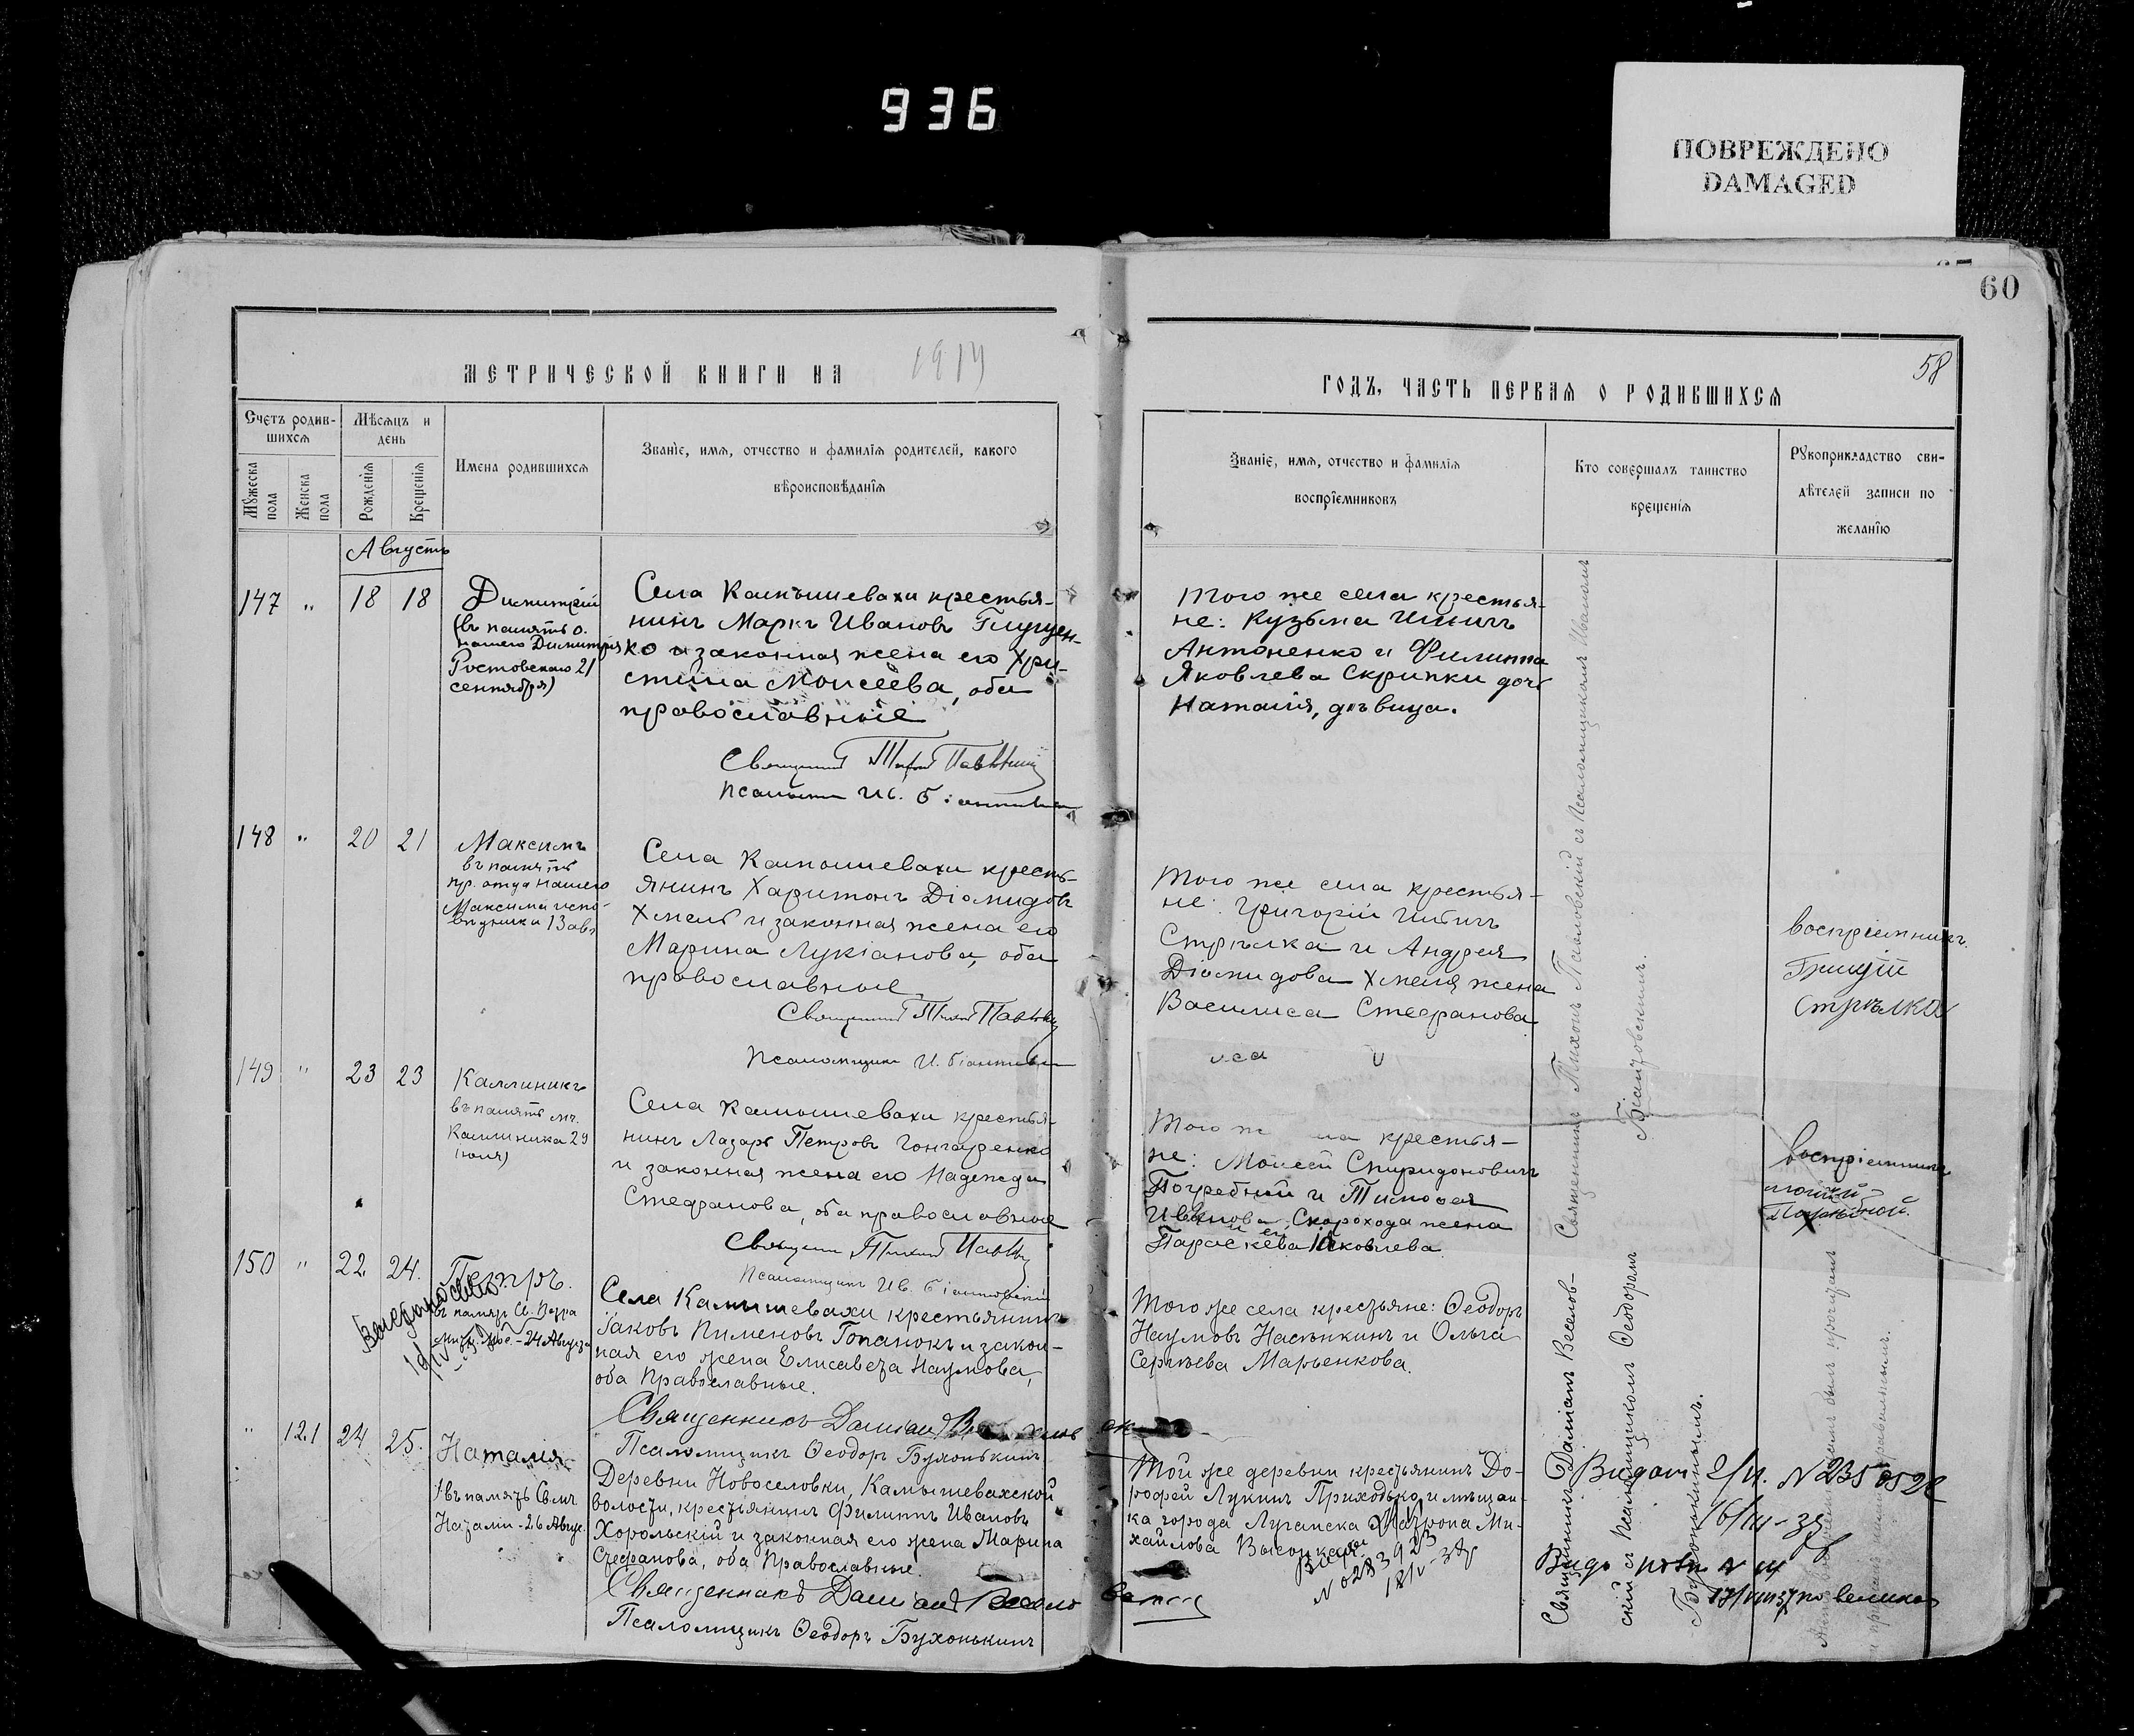 936
ПОВРЕЖДЕНО
DAMAGED
60
58
МЕТРИЧЕСКОЙ КНИГИ НА 1914
ГОДЪ, ЧАСТЬ ПЕРВАЯ О РОДИВШИХСЯ
Счетъ родив-
шихся
Мѣсяцъ и
день
Мужеска
пола
Женска
пола
Рожденія
Крещенія
Имена родившихся
Званіе, имя, отчество и фамилія родителей, какого
вѣроисповѣданія
Званіе, имя, отчество и фамилія
воспріемниковъ
Кто совершалъ таинство
крещенія
Рукоприкладство сви-
дѣтелей записи по
желанію
Августъ
147 " 18 18
Димитрій
(въ память о.
нашего Димитрія
Ростовскаго 21
сентября)
Села Камышевахи крестья-
нинъ Маркъ Ивановъ Глущен-
ко и законная жена его Хри-
стина Моисеева, оба
православные
Священникъ
Псаломщикъ Ив.
Того же села крестья-
не: Кузьма Ильичъ
Антоненко и Филиппа
Яковлева Скрипки дочь
Наталія, дѣвица.
148 " 20 21
Максимъ
въ память
пр. отца нашего
Максима испо-
вѣдника 13 авг.
Села Камышевахи кресть-
янинъ Харитонъ Діомидовъ
Хмель и законная жена его
Марина Лукіанова, оба
православные
Священникъ
Псаломщикъ И.
Того же села крестья-
не: Григорій
Стрѣлка и Андрея
Діомидова Хмеля жена
Василиса Стефанова
воспріемникъ
Стрѣлка
149 " 23 23
Каллиникъ
въ память мч.
Каллиника 29
іюля)
Села Камышевахи крестья-
нинъ Лазарь Петровъ Гончаренко
и законная жена его Надежда
Стефанова, оба православные
Священникъ
Псаломщикъ Ив.
Того крестья-
не: Моисей Спиридоновичъ
Погребной и Тимофея
Иванова Скорохода жена
Параскева Яковлева
воспріемникъ
Священникъ Тихонъ Павловскій съ Псаломщикомъ Иваномъ
150 " 22 24.
Петръ.
въ память Св. Петра
24 Августа
Села Камышевахи крестьянинъ
Іаковъ Пименовъ Гопанокъ и закон-
ная его жена Елисавета Наумова,
оба Православные.
Священникъ Даміанъ
Псаломщикъ Ѳеодоръ Бухонькинъ
Того же села крестьяне: Ѳеодоръ
Наумовъ Насѣкинъ и Ольга
Сергѣева Марьенкова.
" 121 24 25.
Наталія
въ память Св. мч.
Наталіи - 26 Авгус.
Деревни Новоселовки, Камышевахской
волости, крестьянинъ Филиппъ Ивановъ
Хорольскій и законная его жена Марина
Стефанова, оба Православные.
Священникъ Даміанъ
Псаломщикъ Ѳеодоръ Бухонькинъ
Той же деревни крестьянинъ До-
рофей Лукинъ Приходько и мѣщан-
ка города Луганска Матрона Ми-
хайлова
Священникъ Даміанъ Веселов-
скій съ Псаломщикомъ Ѳеодоромъ
Бухонькинымъ.